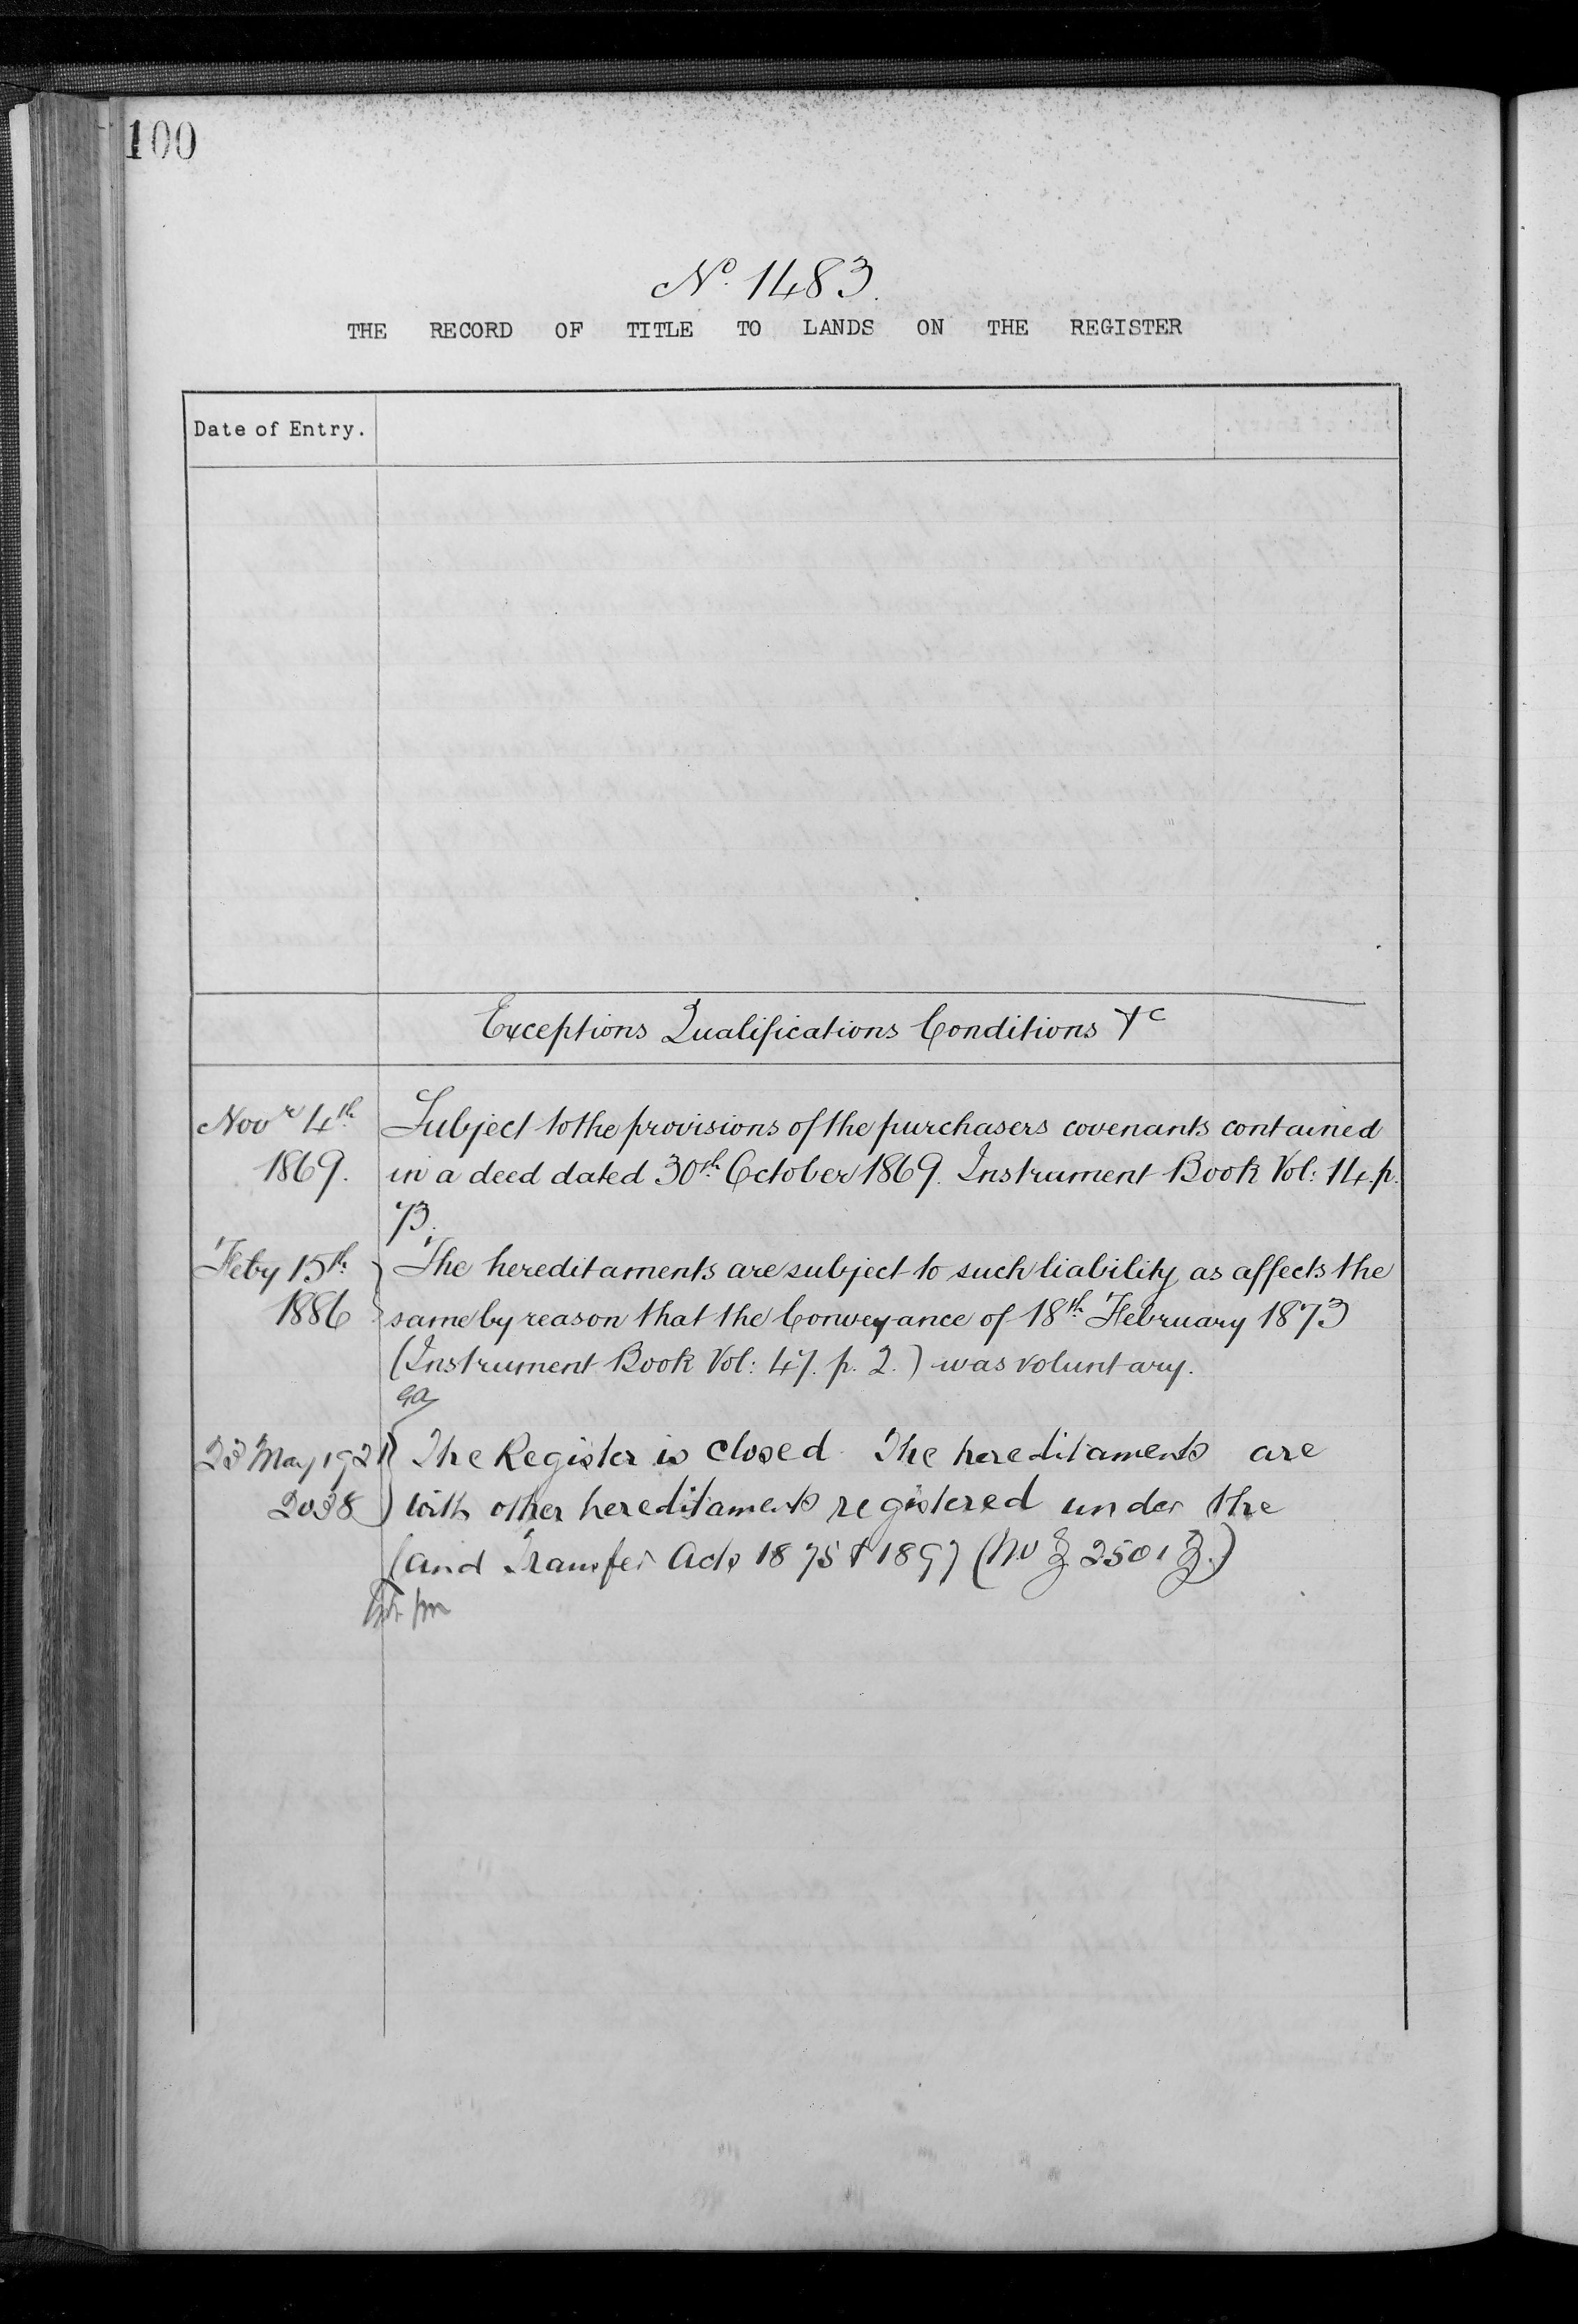 100
No. 1483.
THE RECORD OF TITLE TO LANDS ON THE REGISTER
Date of Entry.
Exceptions Qualifications Conditions &c
Novr 4th Subject to the provisions of the purchasers covenants contained
1869. in a deed dated 30th October 1869. Instrument Book Vol: 14. p.
73.
Feby 15th The hereditaments are subject to such liability as affects the
1886 same by reason that the Conveyance of 18th February 1873
(Instrument Book Vol: 47. p. 2.) was voluntary.
23 May 1921 The Register is closed. The hereditaments are
2038 with other hereditaments registered under the
Land Transfer Acts 1875 & 1897 (No 2501)